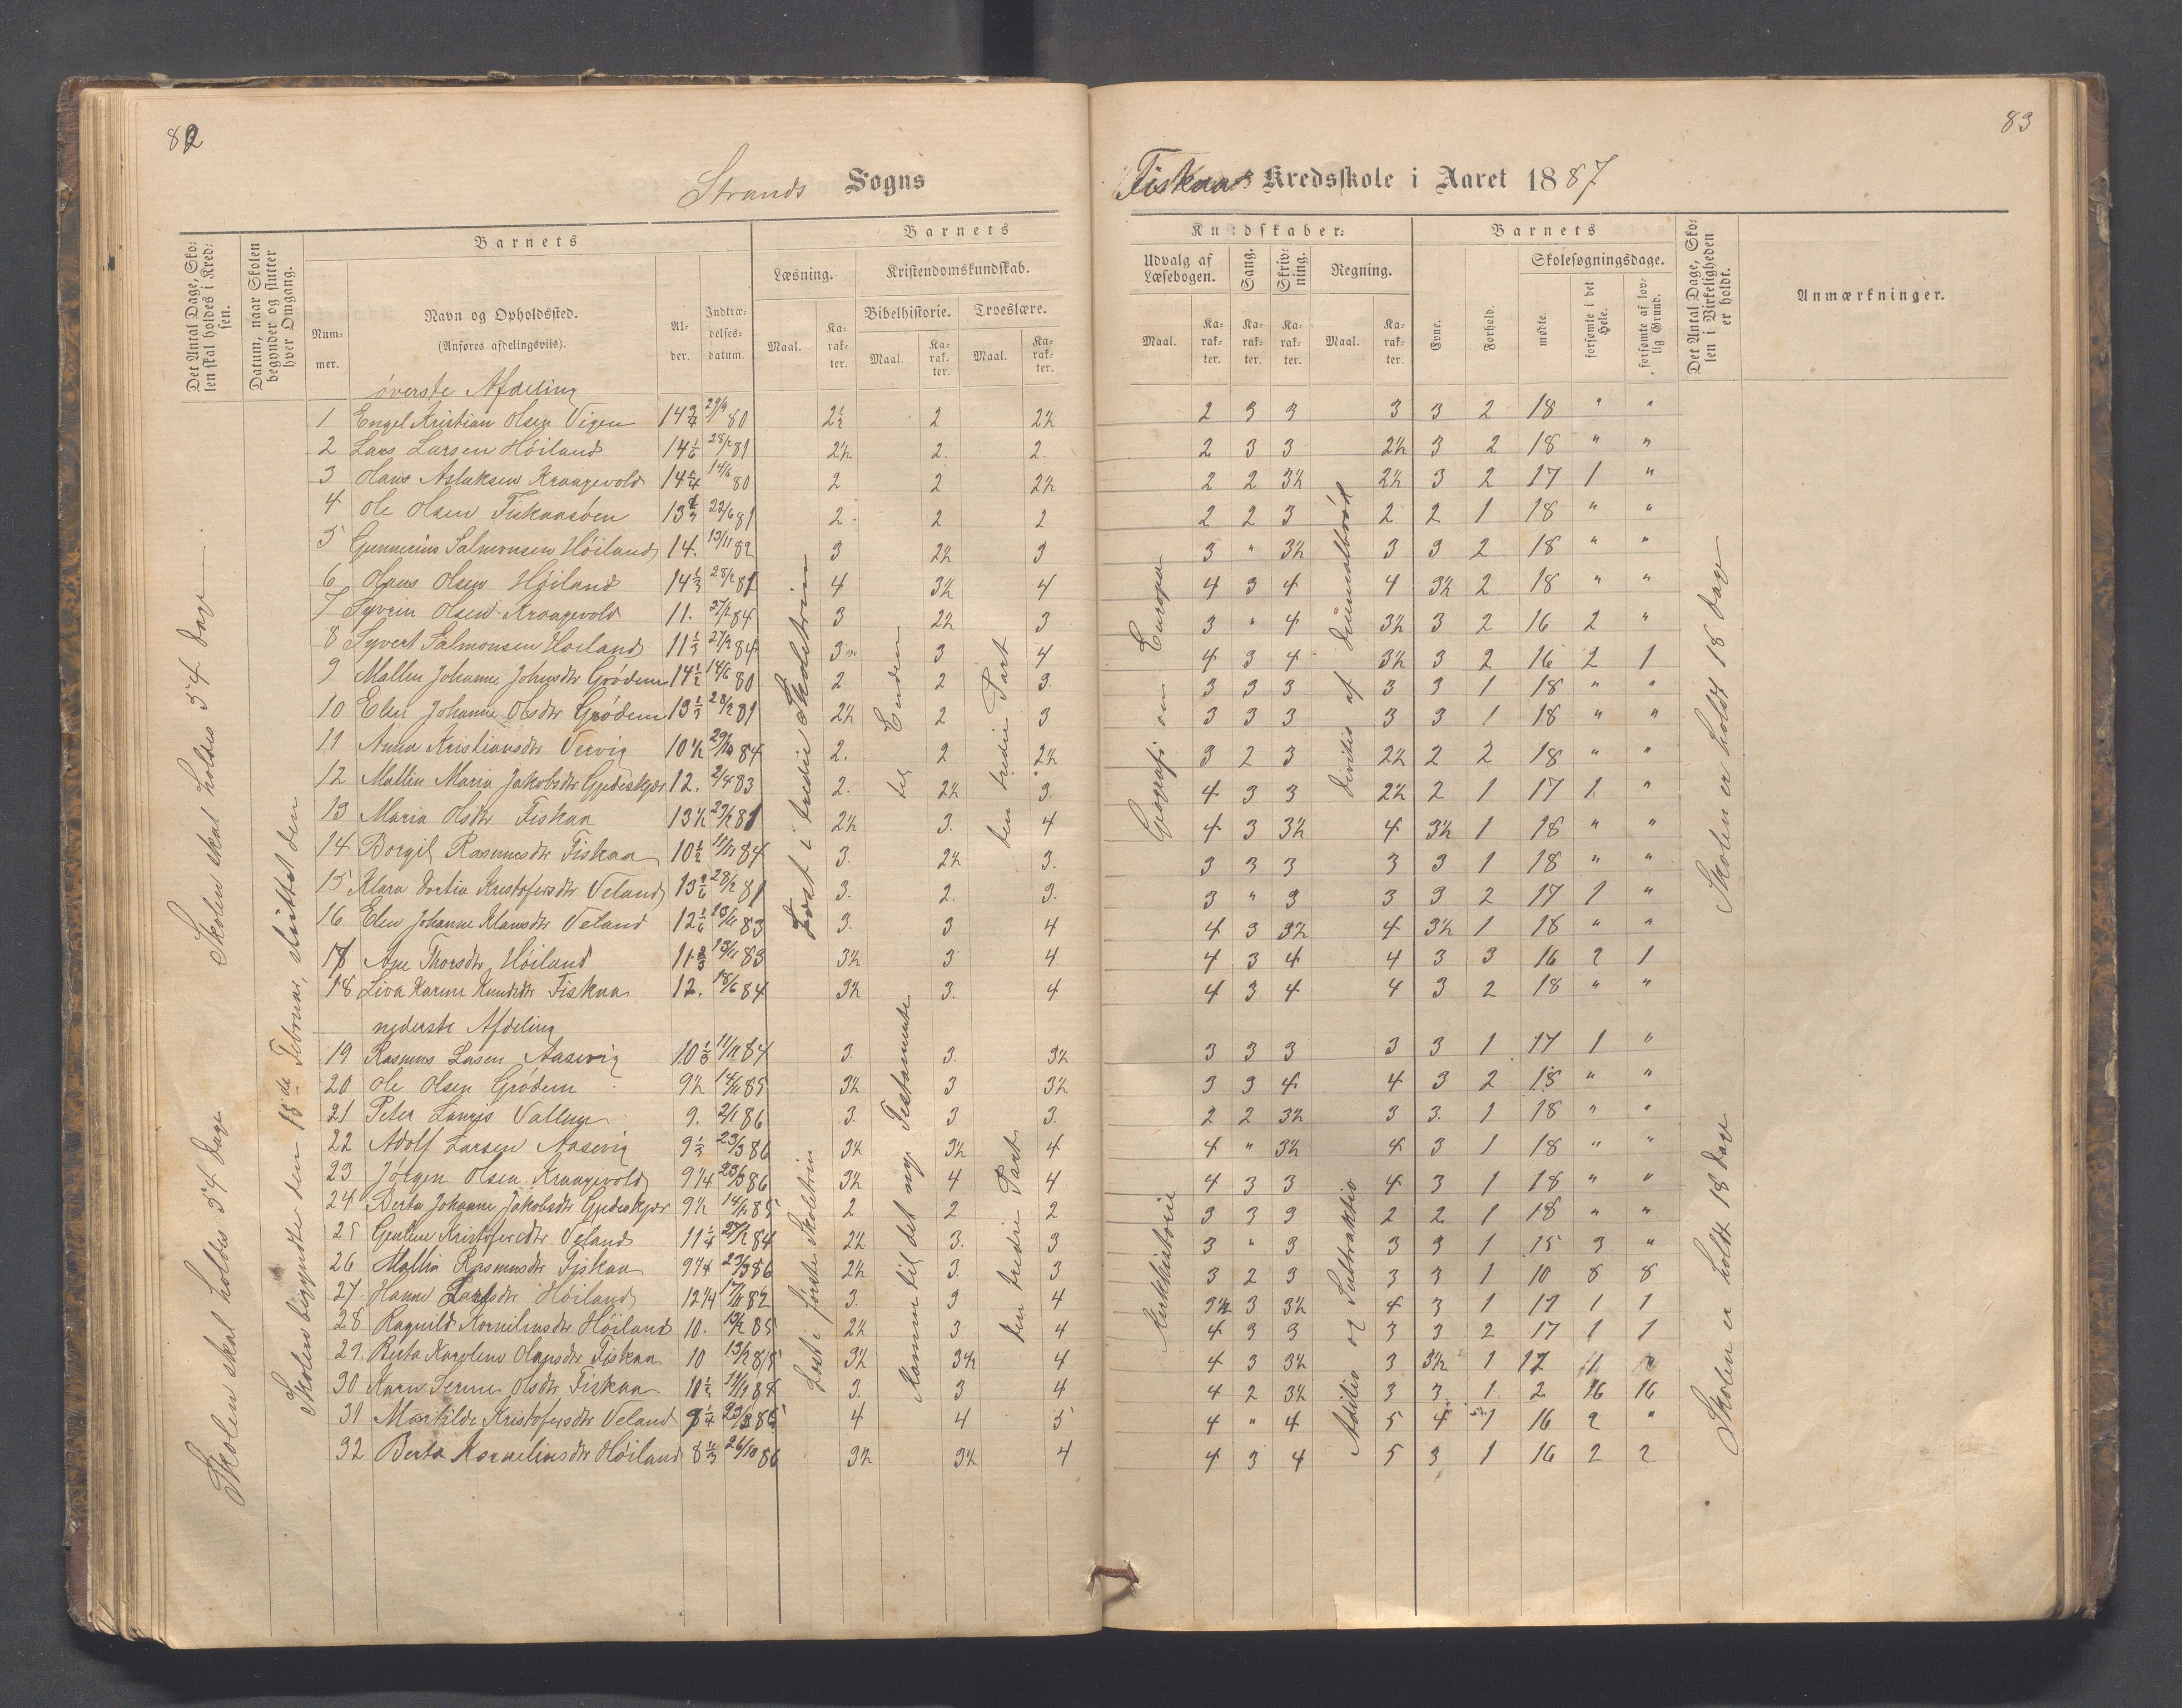 82
83
Strands Sogns
Fiskaa Kredsskole i Aaret 1887
Det Antal Dage, Skolen skal holdes i Kredsen.
Datum, naar Skolen begynder og slutter hver Omgang.
Barnets
Nummer.
Navn og Opholdssted.
(Anføres afdelingsviis).
Alder.
Indtrædelsesdatum.
Barnets
Læsning.
Kristendomskundskab.
Bibelhistorie.
Troeslære.
Maal.
Karakter.
Maal.
Karakter.
Maal.
Karakter.
Kundskaber:
Udvalg af Læsebogen.
Sang.
Skrivning.
Regning.
Maal.
Karakter.
Karakter.
Karakter.
Maal.
Karakter.
Barnets
Evne.
Forhold.
Skolesøgningsdage.
mødte.
forsømte i det Hele.
forsømte af lovlig Grund.
Det Antal Dage, Skolen i Virkeligheden er holdt.
Anmærkninger.
øverste Afdeling
1 Engel Kristian Olsen Vigen 14 3/4 29/9 80 2½ 2 2½ 2 3 3 3 3 2 18 " "
2 Lars Larsen Höiland 14 1/6 28/2 81 2½ 2. 2. 2 3 3 2½ 3 2 18 " "
3 Hans Aslaksen Kraagevold 14 14/6 80 2 2 2½ 2 2 3½ 2½ 3 2 17 1 "
4 Ole Olsen Fiskaasöen 13 22/6 81 2 2 2 2 2 3 2 2 1 18 " "
5 Gunnerius Salmonsen Höiland 14. 13/11 82 3 2½ 3 3 " 3½ 3 3 2 18 " "
6 Hans Olsen Höiland 14 1/3 28/2 81 4 3½ 4 4 3 4 4 3½ 2 18 " "
7 Syvrin Olsen Kraagevold 11. 27/2 84 3 2½ 3 3 " 4 3½ 3 2 16 2 "
8 Syvert Salmonsen Höiland 11 1/3 27/2 84 3 3 4 4 3 4 3½ 3 2 16 2 1
9 Mallin Johanne Johnsdtr Grödem 14 1/2 14/6 80 2 2 3. 3 3 3 3 3 1 18 " "
10 Elen Johanne Olsdtr Grödem 13 1/3 28/2 81 2½ 2 3 3 3 3 3 3 1 18 " "
11 Anna Kristiansdtr Vervig 10½ 29/10 84 2. 2 2½ 3 2 3 2½ 2 2 18 " "
12 Mallin Maria Jakobsdtr Gjedeskjær 12. 2/4 83 2. 2½ 3. 4 3 3 2½ 2 1 17 1 "
13 Maria Olsdtr Fiskaa 13½ 29/2 81 2½ 3. 4 4 3 3½ 4 3½ 1 18 " "
14 Borgil Rasmusdtr Fiskaa 10 1/2 11/11 84 3. 2½ 3. 3 3 3 3 3 1 18 " "
15 Klara Dortia Kristofersdtr Veland 13 28/2 81 3. 2. 3. 3 " 3 3 3 2 17 1 "
16 Elen Johanne Klausdtr Veland 12 1/6 13/11 83 3. 3 4 4 3 3½ 4 3½ 1 18 " "
17 Ane Thorsdtr Höiland 11 2/3 13/11 83 3½ 3 4 4 3 4 4 3 3 16 2 1
18 Liva Karine Knudsdtr Fiskaa 12. 18/6 84 3½ 3. 4 4 3 4 4 3 2 18 " "
nederste Afdeling
19 Rasmus Lasen Aasevig 10 1/3 11/11 84 3. 3. 3½ 3 3 3 3 3 1 17 1 "
20 Ole Olsen Grödem 9½ 14/11 85 3½ 3 3½ 3 3 4 4 3 2 18 " "
21 Peter Laugs Valleng 9. 2/1 86 3. 3 3. 2 2 3½ 3 3. 1 18 " "
22 Adolf Larsen Aasevig 9 1/3 23/3 86 3½ 3½ 4 4 " 3½ 4 3 1 18 " "
23 Jörgen Olsen Kraagevold 9¼ 23/3 86 3½ 4 4 4 3 3 4 3 1 18 " "
24 Berta Johanne Jakobsdtr Gjedeskjær 9½ 14/11 85 2 2 2 3 3 3 2 2 1 18 " "
25 Gemline Kristofersdtr Veland 11 1/4 27/2 84 2½ 3. 3 3 " 3 3 3 1 15 3 "
26 Mallin Rasmusdtr Fiskaa 9¼ 23/3 86 2½ 3. 3 3 2 3 3 3 1 10 8 8
27 Hanne Larsdtr Höiland 12¼ 17/11 82 3. 3 4 3½ 3 3½ 4 3 1 17 1 1
28 Ragnild Kornelinsdtr Höiland 10. 13/2 85 2½ 3 4 4 3 3 3 3 2 17 1 1
29. Berta Karoline Olaisdtr Fiskaa 10 13/2 85 3½ 3½ 4 4 3 3½ 3 3½ 1 17 1 "
30 Karn Serine Olsdtr Fiskaa 10 1/2 11/11 84 3. 3 4 4 2 3½ 3 3. 1. 2 16 16
31 Marthilde Kristofersdtr Veland 8 1/4 23/3 86 4 4 5 4 " 4 5 4 1 16 2 "
32 Berta Kornelinsdtr Höiland 8 2/3 26/10 86 3½ 3½ 4 4 3 4 5 3 1 16 2 2
Skolen skal holdes 54 Dage
Skolen skal holdes 54 Dage
Skolen begyndte den 18de Februar, sluttet den
Læst i tredie Skoletrin
Læst i første Skoletrin
til Enden
kommen til det nye Testamente
den tredie Part
den tredie Part
Geografi om Europa
Kirkehistorie
Divitio af Decimalbrök
Aditio og Subtraktio
Skolen er holdt 18 Dage
Skolen er holdt 18 Dage